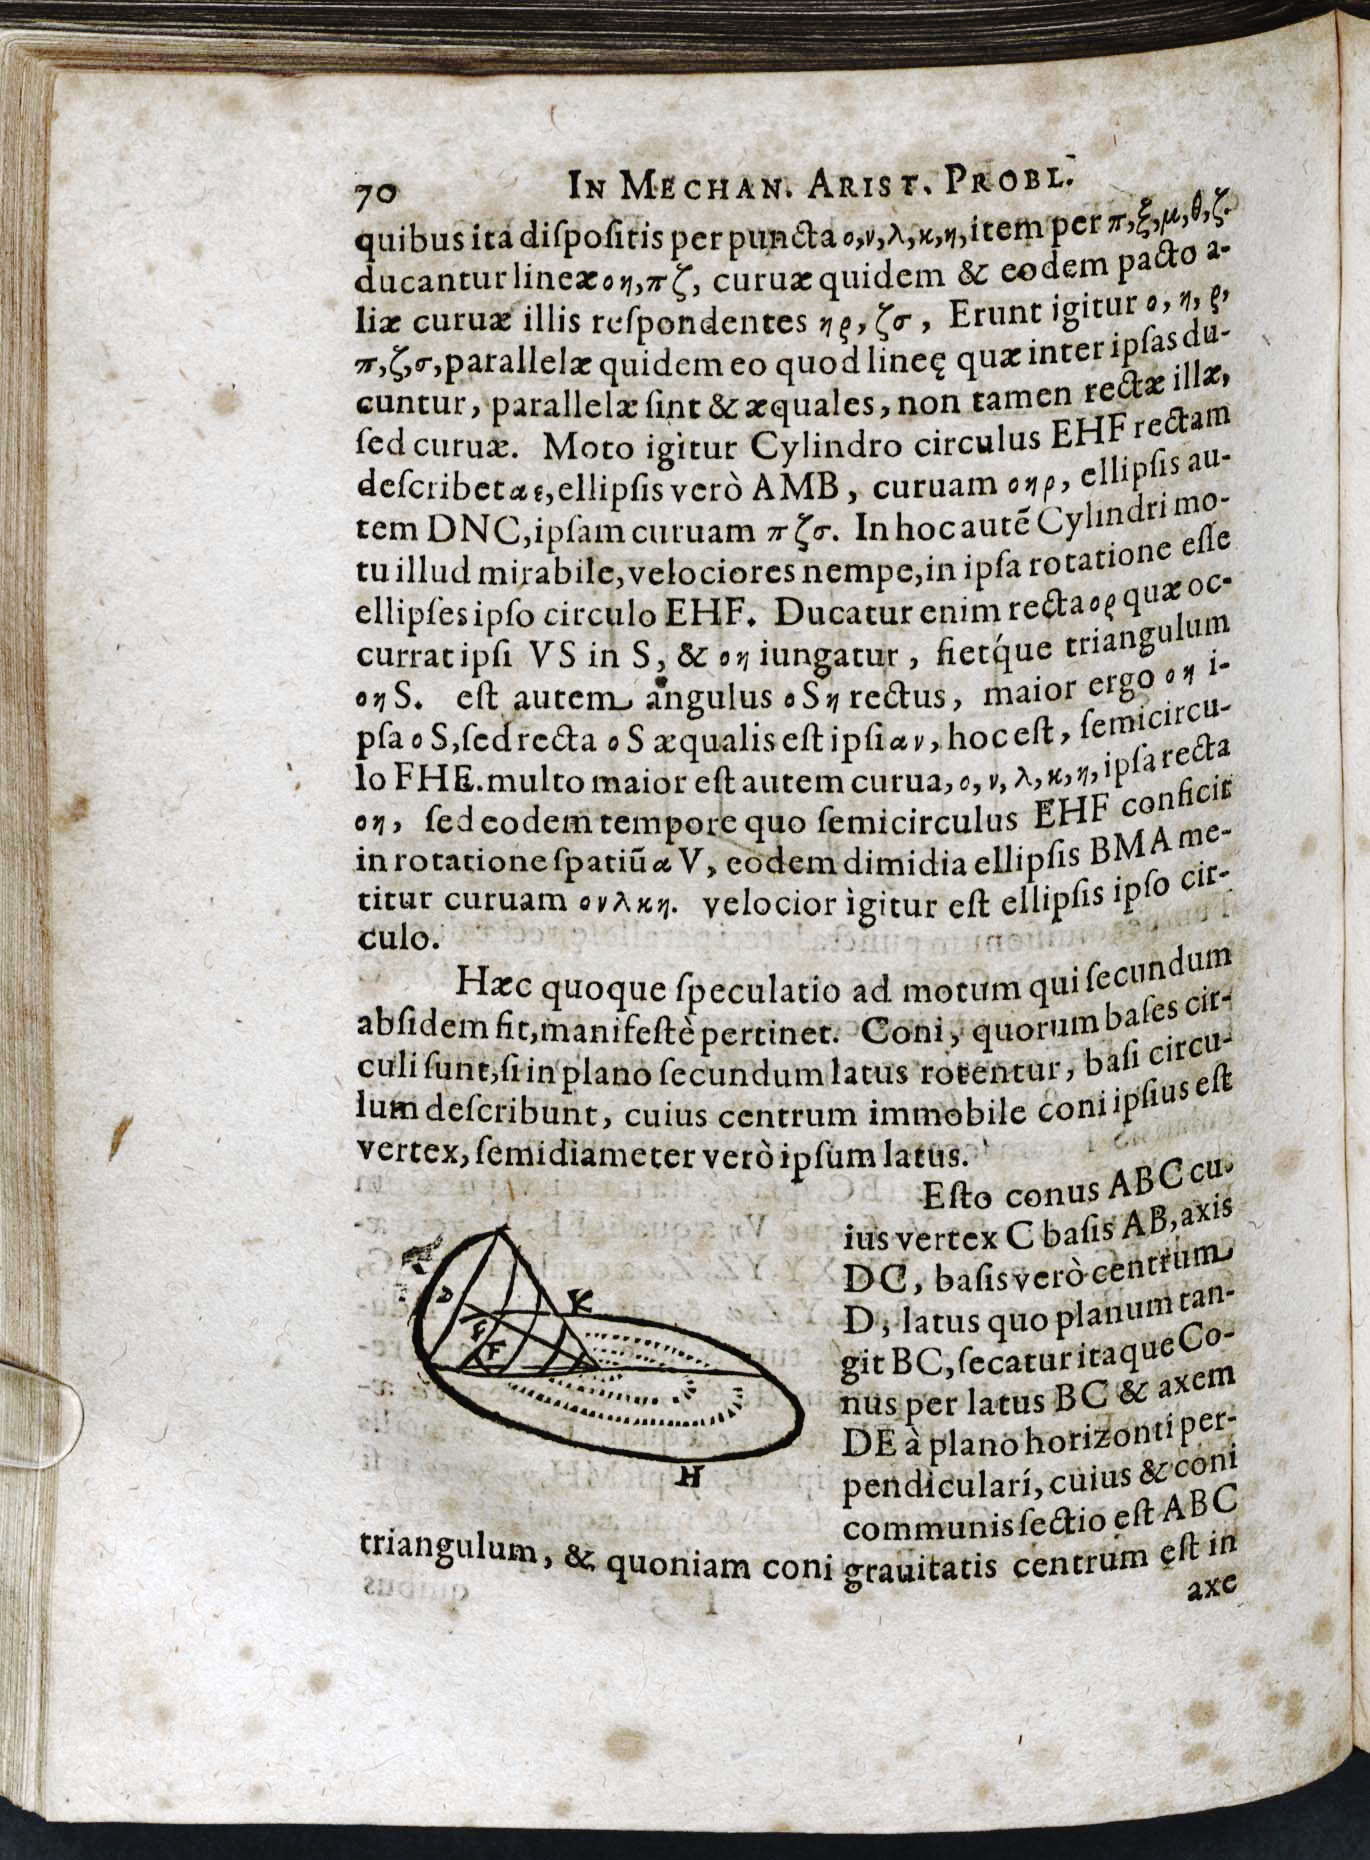 70 IN MECHAN. ARIST. PROBL.
quibus ita diſpoſitis per puncta ο,ν,λ,κ,η, item per π,ξ,μ,θ,ζ.
ducantur lineæ ο η, π ζ, curuæ quidem & eodem pacto a-
liæ curuæ illis reſpondentes η ρ, ζ σ, Erunt igitur ο, η, ρ,
π,ζ,σ, parallelæ quidem eo quod lineę quæ inter ipſas du-
cuntur, parallelæ ſint & æquales, non tamen rectæ illæ,
ſed curuæ. Moto igitur Cylindro circulus EHF rectam
deſcribet α ε, ellipſis verò AMB, curuam ο η ρ, ellipſis au-
tem DNC, ipſam curuam π ζ σ. In hoc autẽ Cylindri mo-
tu illud mirabile, velociores nempe, in ipſa rotatione eſſe
ellipſes ipſo circulo EHF. Ducatur enim recta ο ρ quæ oc-
currat ipſi VS in S, & ο η iungatur, fietq́ue triangulum
ο η S. eſt autem angulus ο S η rectus, maior ergo ο η i-
pſa ο S, ſed recta ο S æqualis eſt ipſi α ν, hoc eſt, ſemicircu-
lo FHE. multo maior eſt autem curua, ο, ν, λ, κ, η, ipſa recta
ο η, ſed eodem tempore quo ſemicirculus EHF conficit
in rotatione ſpatiũ α V, eodem dimidia ellipſis BMA me-
titur curuam ο ν λ κ η. velocior igitur eſt ellipſis ipſo cir-
culo.
Hæc quoque ſpeculatio ad motum qui ſecundum
abſidem fit, manifeſtè pertinet. Coni, quorum baſes cir-
culi ſunt, ſi in plano ſecundum latus rotentur, baſi circu-
lum deſcribunt, cuius centrum immobile coni ipſius eſt
vertex, ſemidiameter verò ipſum latus.
Eſto conus ABC cu-
ius vertex C baſis AB, axis
DC, baſis verò centrum
D, latus quo planum tan-
git BC, ſecatur itaque Co-
nus per latus BC & axem
DE à plano horizonti per-
pendiculari, cuius & coni
communis ſectio eſt ABC
triangulum, & quoniam coni grauitatis centrum eſt in
axe
D
K
F
H